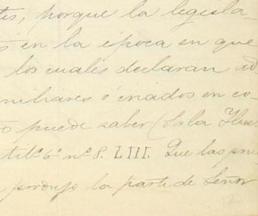 tes, porque la legisla
s en la época en que
los cuales declaran
miliares ó criados en co-
to puede saber (Sala
titº 6º nº 8. LIII. Que las
produjo la parte de Señor